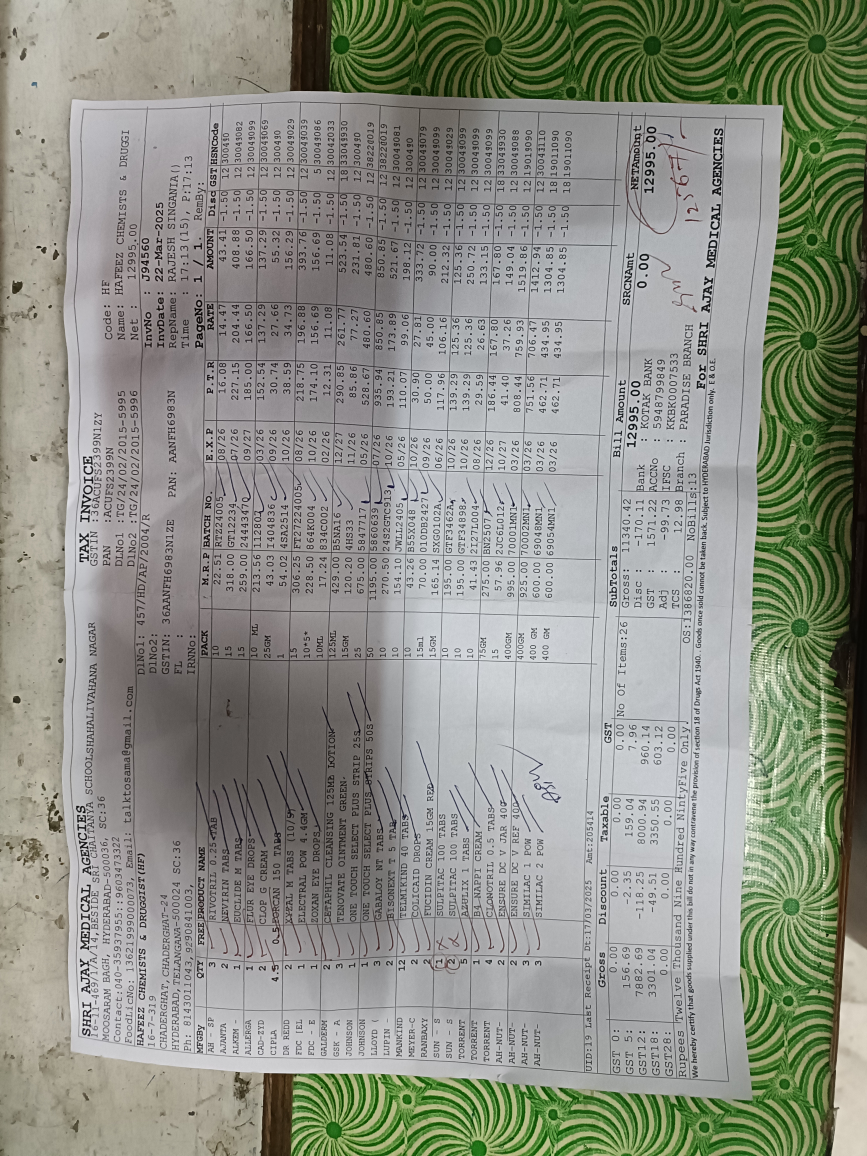 SHRI AJAY MEDICAL AGENCIES
16-11-469/1/A/14,BESIDE SRI CHAITANYA SCHOOLSHAHALIVAHANA NAGAR
MOOSARAM BAGH, HYDERABAD-500036, SC:36
Contact:040-35937955::9603473322
FoodLicNo: 13621999000073, Email: talktosama@gmail.com
TAX INVOICE
GSTIN :36ACUFS2399N1ZY
PAN : ACUFS2399N
DlNo1 :TG/24/02/2015-5995
DlNo2 :TG/24/02/2015-5996
Code: HF
Name: HAFEEZ CHEMISTS & DRUGGI
Net : 12995.00
HAFEEZ CHEMISTS & DRUGGIST(HF)
16-7-319
CHADERGHAT, CHADERGHAT-24
HYDERABAD, TELANGANA-500024 SC:36
Ph: 8143011043,9290841003,
DlNo1: 457/HD/AP/2004/R
DlNo2:
GSTIN: 36AANFH6983N1ZE PAN: AANFH6983N
FL :
IRNNo:
InvNo : J94560
InvDate: 22-Mar-2025
RepName: RAJESH SINGANIA()
Time : 17:13(15), P:17:13
PageNo: 1 / 1. RemBy:
MFGBy QTY FREE PRODUCT NAME PACK M.R.P BATCH NO. E.X.P P.T.R RATE AMOUNT Disc GST HSNCode
AH - SP 3 RIVOTRIL 0.25 TAB 10 22.51 RTZ24005 08/26 16.08 14.47 43.41 -1.50 12 300490
AJANTA 2 METXTIN TABS 15 318.00 GT12234 07/26 227.15 204.44 408.88 -1.50 12 30049082
ALKEM - 1 EUCLIDE M TABS 15 259.00 24443470 09/27 185.00 166.50 166.50 -1.50 12 30049099
ALLERGA 1 FLUR EYE DROPS 10 ML 213.56 1128C 03/26 152.54 137.29 137.29 -1.50 12 30049069
CAD-ZYD 2 CLOP G CREAM 25GM 43.03 I404836 09/26 30.74 27.66 55.32 -1.50 12 300490
CIPLA 4.5 0.5 FORCAN 150 TABS 1 54.02 4SA2514 10/26 38.59 34.73 156.29 -1.50 12 30049029
DR REDD 2 M TABS (10/S) 15 306.25 FT27224005 08/26 218.75 196.88 393.76 -1.50 12 30049039
FDC [EL 1 ELECTRAL POW 4.4GM 10*5* 228.50 864K004 10/26 174.10 156.69 156.69 -1.50 5 30049086
FDC - E 1 ZOXAN EYE DROPS 10ML 17.24 834C002 02/26 12.31 11.08 11.08 -1.50 12 30042033
GALDERM 2 CETAPHIL CLEANSING 125ML LOTION 125ML 429.00 B5NA16 12/27 290.85 261.77 523.54 -1.50 18 33049930
GSK - A 3 TENOVATE OINTMENT GREEN 15GM 120.20 4HS33 11/26 85.86 77.27 231.81 -1.50 12 300490
JOHNSON 1 ONE TOUCH SELECT PLUS STRIP 25S 25 675.00 5847717 05/26 528.67 480.60 480.60 -1.50 12 38220019
JOHNSON 1 ONE TOUCH SELECT PLUS STRIPS 50S 50 1195.00 5860639 07/26 935.94 850.85 850.85 -1.50 12 38220019
LLOYD ( 3 GABALOY NT TABS 10 270.50 24S2GTC913 10/26 193.21 173.89 521.67 -1.50 12 30049081
LUPIN - 2 BISONEXT T 5 TAB 10 154.10 JWLL2405 05/26 110.07 99.06 198.12 -1.50 12 300490
MANKIND 12 TELMIKIND 40 TABS 10 43.26 B55X048 10/26 30.90 27.81 333.72 -1.50 12 30049079
MEYER-C 2 COLICAID DROPS 15ml 70.00 010DB2427 09/26 50.00 45.00 90.00 -1.50 12 30049099
RANBAXY 2 FUCIDIN CREAM 15GM RED 15GM 165.14 SXG0102A 06/26 117.96 106.16 212.32 -1.50 12 30049029
SUN - S 1 SULPITAC 100 TABS 10 195.00 GTF3462A 10/26 139.29 125.36 125.36 -1.50 12 30049099
SUN - S 2 SULPITAC 100 TABS 10 195.00 GTF3489B 10/26 139.29 125.36 250.72 -1.50 12 30049099
TORRENT 5 AZULIX 1 TABS 10 41.43 2127L004 08/26 29.59 26.63 133.15 -1.50 12 30049099
TORRENT 1 NAPPI CREAM 75GM 275.00 BN2507 12/26 186.44 167.80 167.80 -1.50 18 33049930
TORRENT 4 CLONOTRIL 0.5 TABS 15 57.96 2JC6L012 10/27 41.40 37.26 149.04 -1.50 12 30049088
AH-NUT- 2 ENSURE DC V JAR 400 400GM 995.00 70001MN1 03/26 808.44 759.93 1519.86 -1.50 12 19019090
AH-NUT- 2 ENSURE DC V REF 400 400GM 925.00 70002MN1 03/26 751.56 706.47 1412.94 -1.50 12 30043110
AH-NUT- 3 SIMILAC 1 POW 400 GM 600.00 69048MN1 03/26 462.71 434.95 1304.85 -1.50 18 19011090
AH-NUT- 3 SIMILAC 2 POW 400 GM 600.00 69054MN1 03/26 462.71 434.95 1304.85 -1.50 18 19011090
UID:19 Last Receipt Dt:17/03/2025 Amt:205414
Gross Discount Taxable GST
GST 0: 0.00 0.00 0.00 0.00
GST 5: 156.69 -2.35 159.04 7.96
GST12: 7882.69 -118.25 8000.94 960.14
GST18: 3301.04 -49.51 3350.55 603.12
GST28: 0.00 0.00 0.00 0.00
No Of Items:26
Subtotals
Gross: 11340.42
Disc : -170.11
GST : 1571.22
Adj : -99.73
TCS : 12.98
Bill Amount
12995.00
Bank : KOTAK BANK
ACCNo : 5948799849
IFSC : KKBK0007533
Branch : PARADISE BRANCH
SRCNAmt
0.00
NETAmount
12995.00
12567/-
Rupees Twelve Thousand Nine Hundred NintyFive Only.
OS:1386820.00 NoBills:13
For SHRI AJAY MEDICAL AGENCIES
We hereby certify that goods supplied under this bill do not in any way contravene the provision of section 18 of Drugs Act 1940. . Goods once sold cannot be taken back. Subject to HYDERABAD Jurisdiction only. E & O.E.